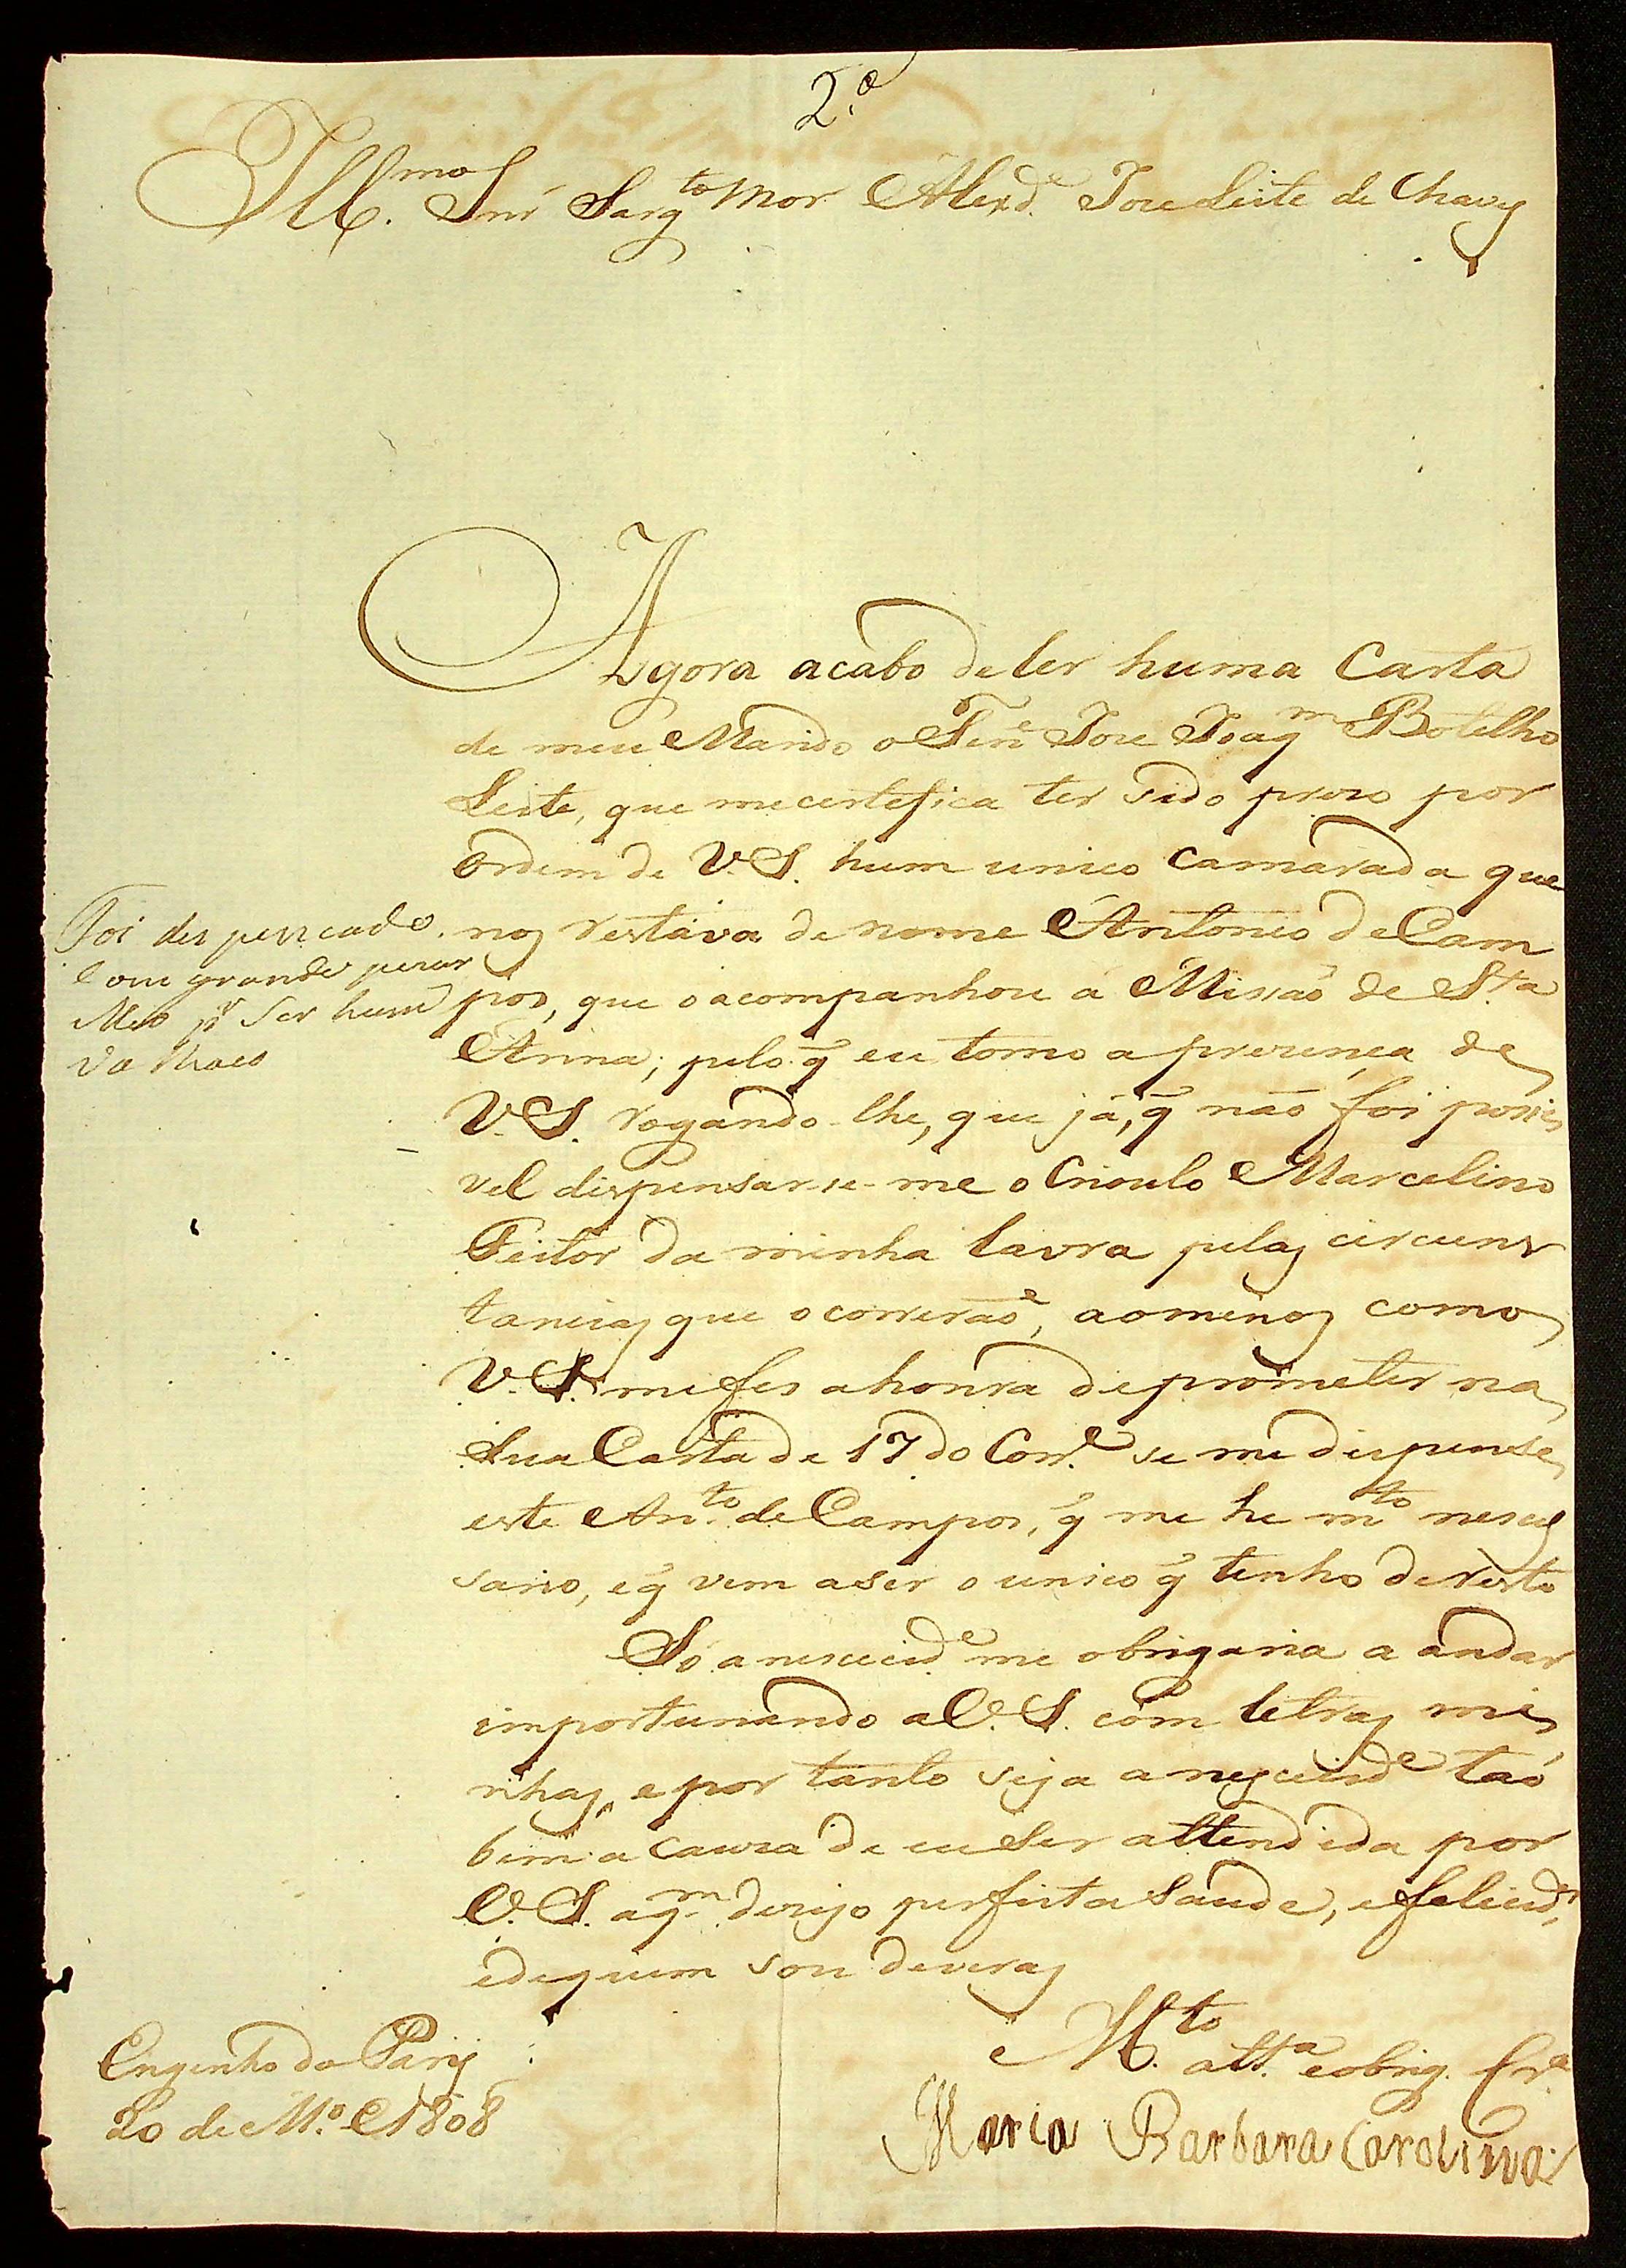 2.ª
Ill.mo Snr Sarg.to Mor Alexd.e Joze Leite de Chaves
Agora acabo de ler huma Carta
de meu Marido o Ten.e Joze Joaq.m Botelho
Leite, que me certefica ter sido prezo por
ordem de V.S. hum unico camarada que
nos restava de nome Antonio de Cam
pos, que o acompanhou á Missaõ de S.ta
Anna; pelo q̃ eu torno a prezença de
V.S. rogando-lhe, que já, q̃ naõ foi possi
vel dispensar-se-me o Crioulo Marcelino
Feitor da minha lavra pelas circuns
tancias que ocorreraõ, ao menos como
V.S. me fes a honra de prometer na
sua Carta de 17 do Corr.e se me dispense
este An.to de Campos, q̃ me he m.to neses
sario, e q̃ vem a ser o unico q̃ tenho de resto
Só a nescecid.e me obrigaria a andar
importunando a V.S. com letras mi
nhas, e por tanto seja a nescecid.e taõ
bem a cauza de eu ser attendida por
V.S. a q.m dezejo perfeita saude, e felicid.es
e de quem sou deveras
Foi despensado
com grande pezar
Meo p.r ser hum
Va
M.to att.a e obrig. Cr.a
Maria Barbara Carolina
Engenho do Pary
20 de M.o de 1808